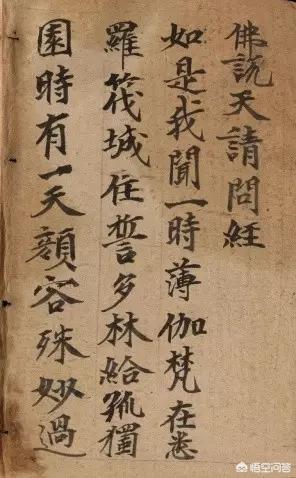 佛説天請問經
如是我聞一時薄伽梵在悉
羅筏城住誓多林給孤獨
園時有一天顏容殊妙過
悟空问答